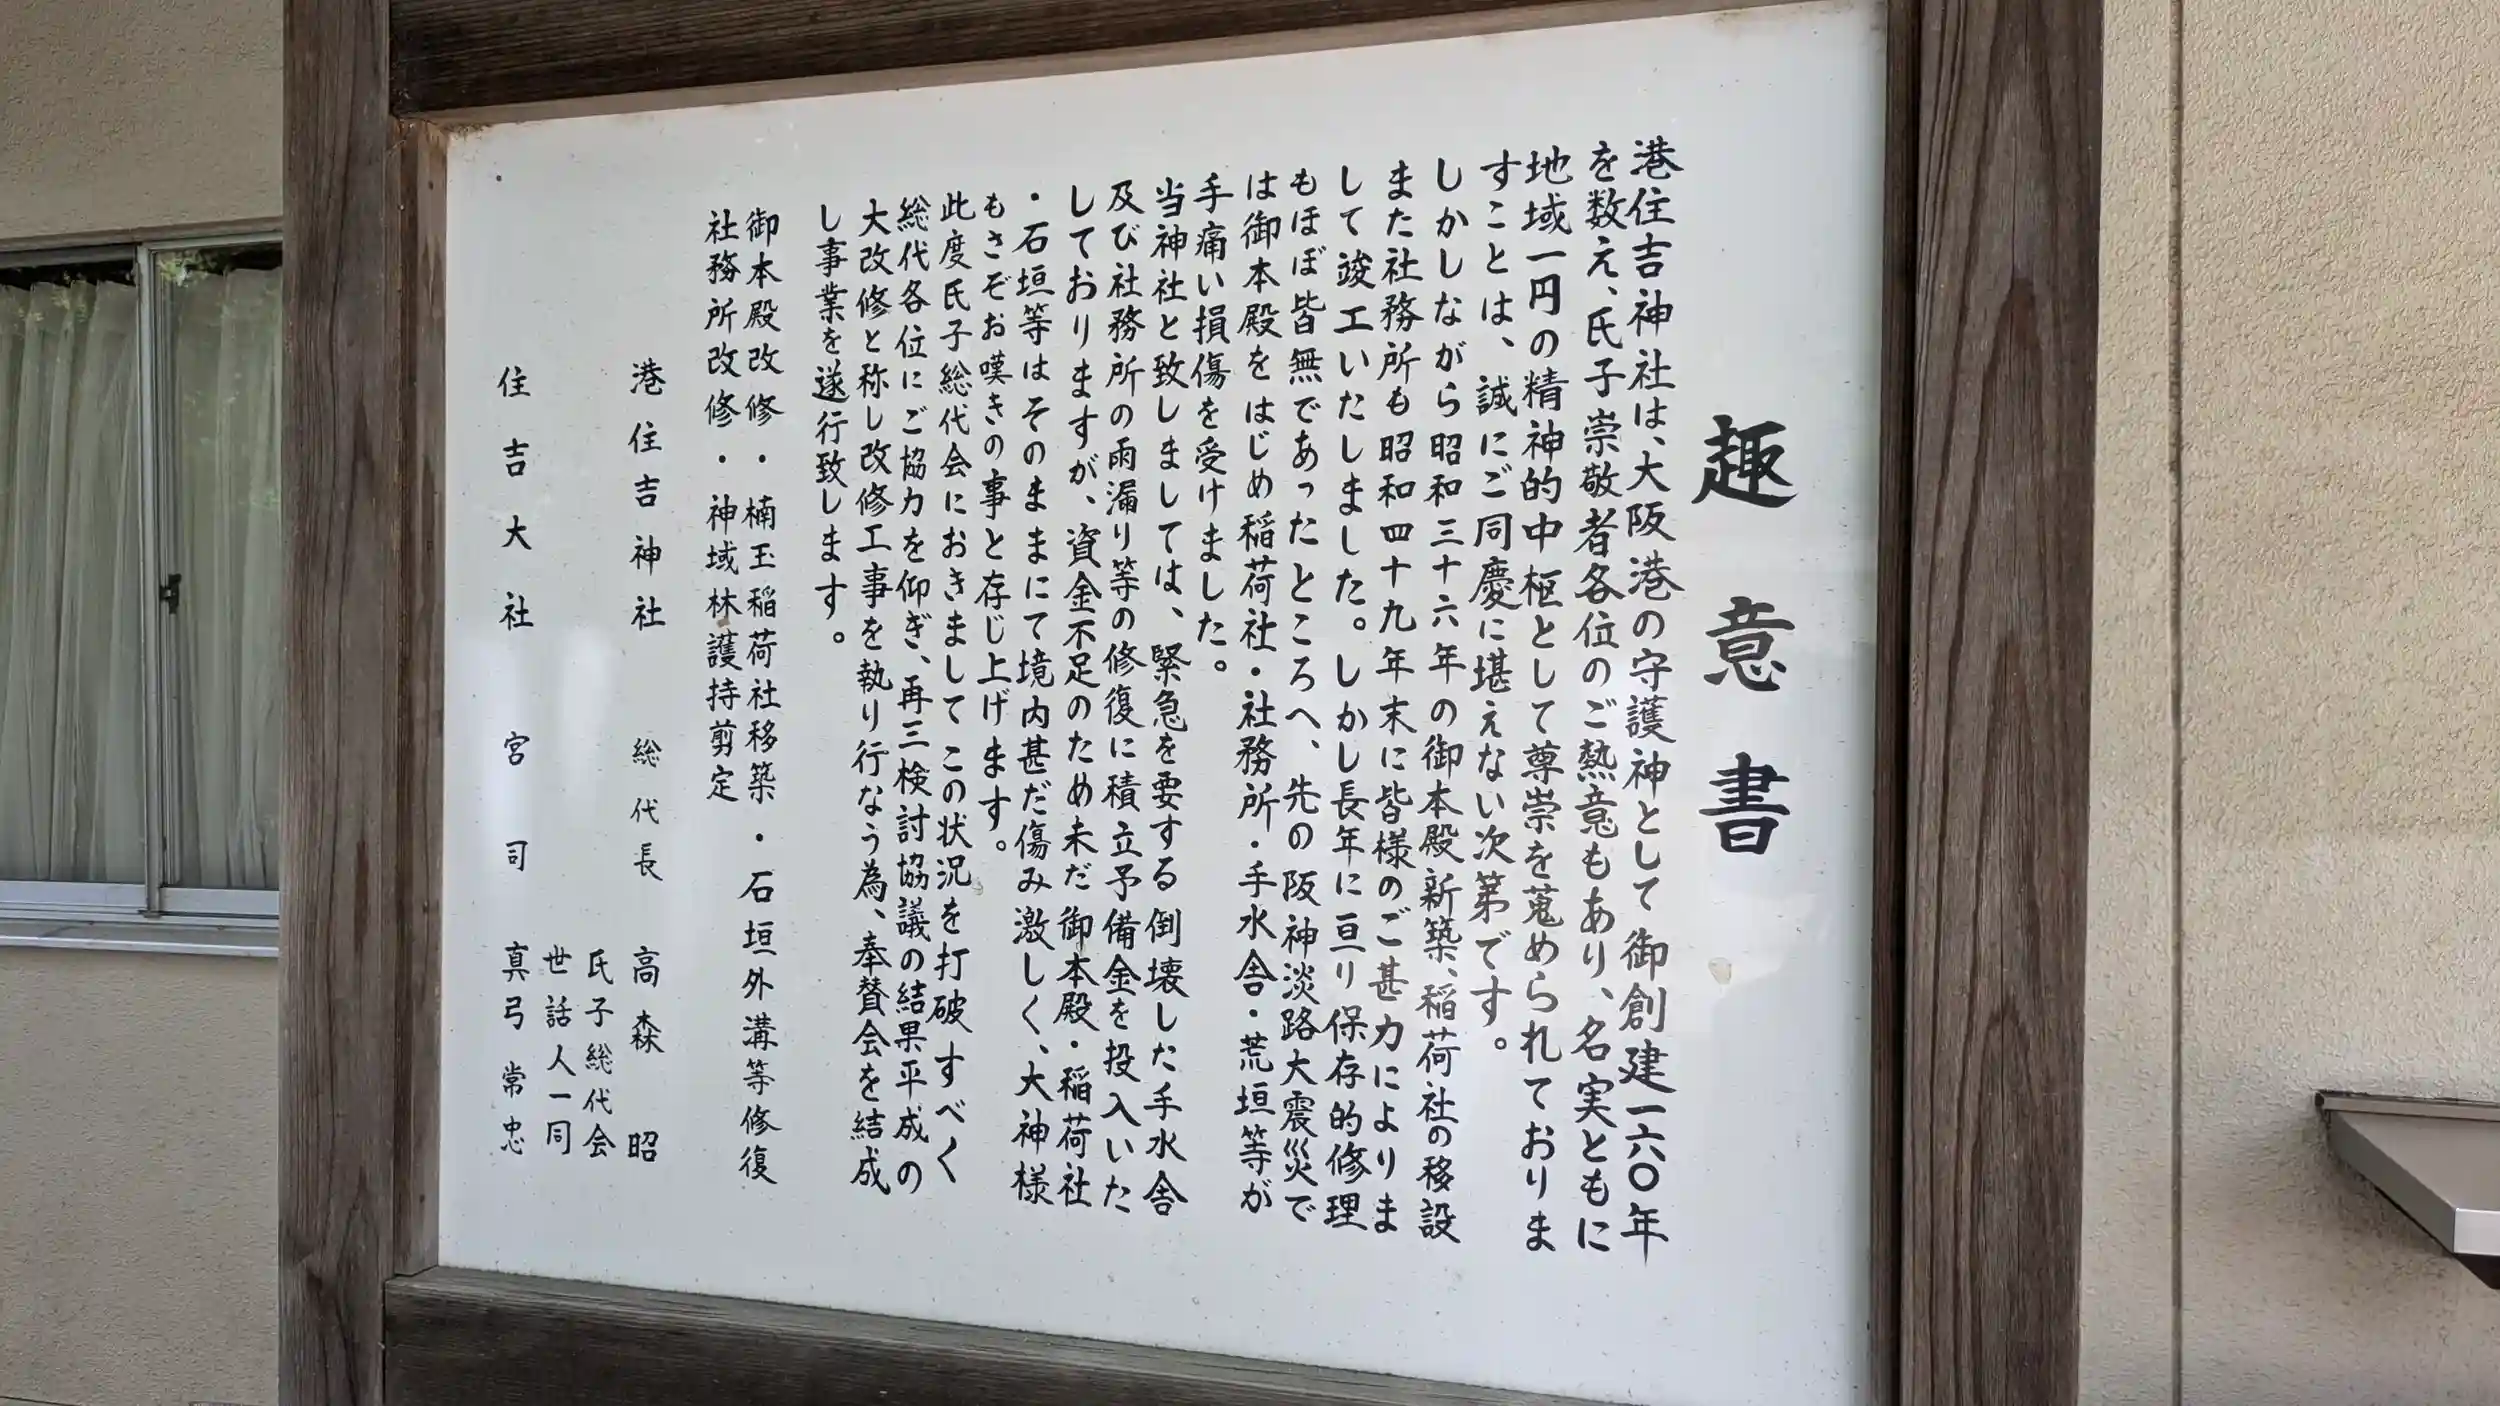 趣意書
港住吉神社は、大阪港の守護神として御創建一六〇年
を数え、氏子崇敬者各位のご熱意もあり、名実ともに
地域一円の精神的中枢として尊崇を蒐められておりま
すことは、誠にご同慶に堪えない次第です。
しかしながら昭和三十六年の御本殿新築、稲荷社の移設
また社務所も昭和四十九年末に皆様のご甚力によりま
して竣工いたしました。しかし長年に亘り保存的修理
もほぼ皆無であったところへ、先の阪神淡路大震災で
は御本殿をはじめ稲荷社・社務所・手水舎・荒垣等が
手痛い損傷を受けました。
当神社と致しましては、緊急を要する倒壊した手水舎
及び社務所の雨漏り等の修復に積立予備金を投入いた
しておりますが、資金不足のため未だ御本殿・稲荷社
・石垣等はそのままにて境内甚だ傷み激しく、大神様
もさぞお嘆きの事と存じ上げます。
此度氏子総代会におきましてこの状況を打破すべく
総代各位にご協力を仰ぎ、再三検討協議の結果平成の
大改修と称し改修工事を執り行なう為、奉賛会を結成
し事業を遂行致します。
御本殿改修・楠玉稲荷社移築・石垣外溝等修復
社務所改修・神域林護持剪定
港住吉神社 総代長 高森昭
氏子総代会
世話人一同
住吉大社 宮司 真弓常忠